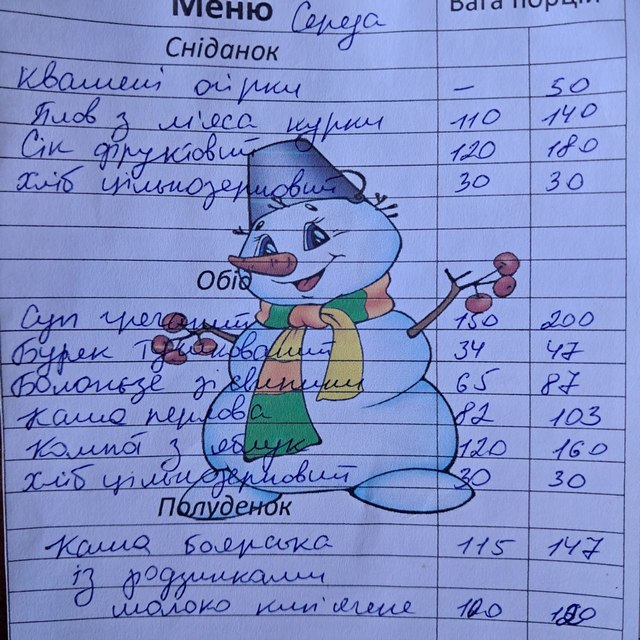 Меню Середа Вага порцій
Сніданок
Квашені огірки – 50
Плов з м'яса курки 110 140
Сік фруктовий 120 180
Хліб цільнозерновий 30 30
Обід
Суп гречаний 150 200
Буряк тушкований 34 47
Болоньзе зі свинини 65 87
Каша перлова 82 103
Компот з яблук 120 160
Хліб цільнозерновий 30 30
Полуденок
Каша боярська 115 147
із родзинками
молоко кип'ячене